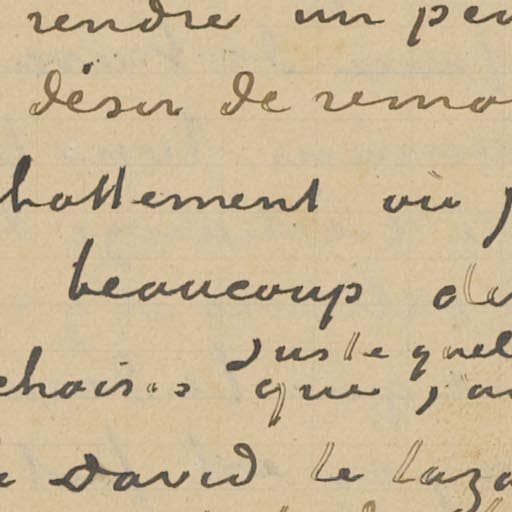 rendre un peu
désir de remo
hottement où j
beaucoup de
juste quel
chois.. que j'a
David le laza